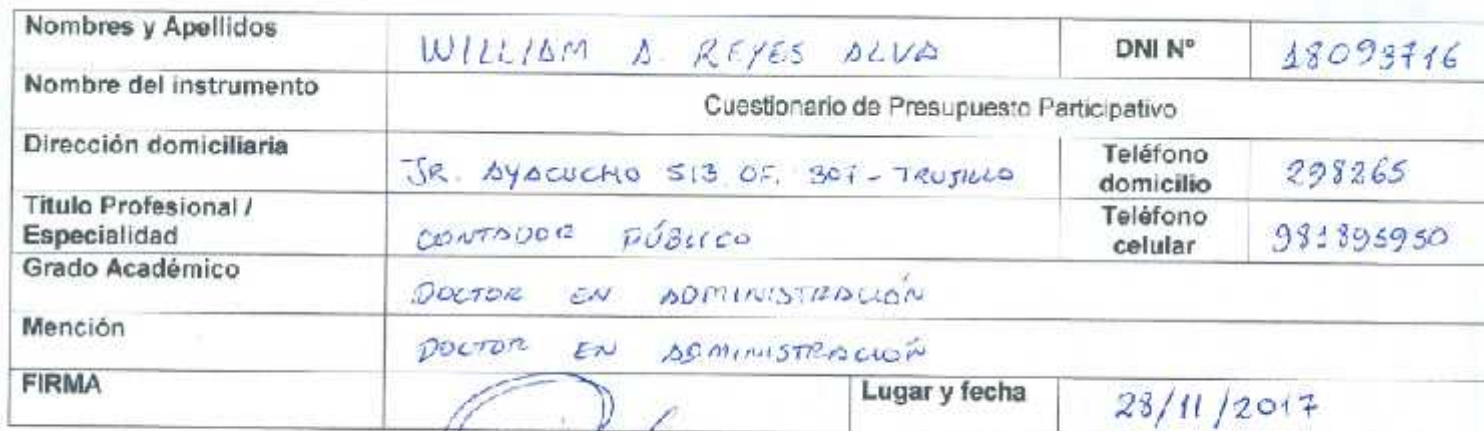 Nombres y Apellidos WILLIAM A. REYES ALVA DNI N° 18093716
Nombre del instrumento Cuestionario de Presupuesto Participativo
Dirección domiciliaria JR. AYACUCHO 513 OF. 307 - TRUJILLO Teléfono domicilio 298265
Título Profesional / Especialidad CONTADOR PÚBLICO Teléfono celular 981895950
Grado Académico DOCTOR EN ADMINISTRACIÓN
Mención DOCTOR EN ADMINISTRACIÓN
FIRMA Lugar y fecha 28/11/2017